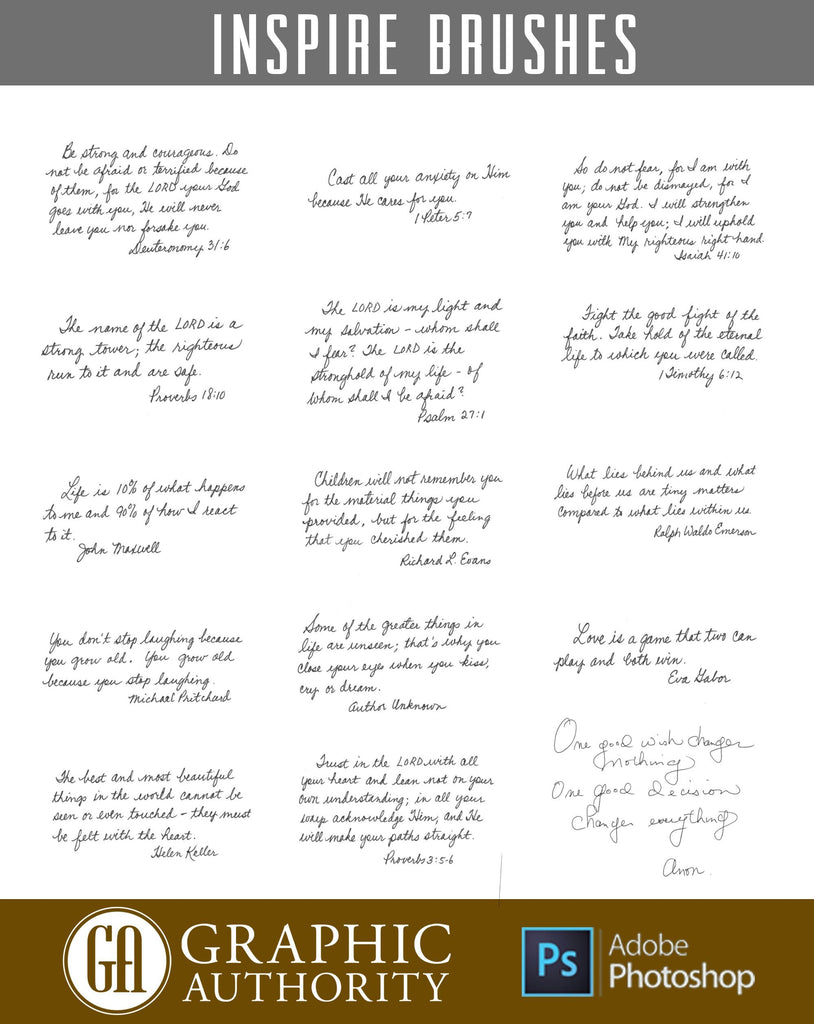 INSPIRE BRUSHES
Be strong and courageous. Do
not be afraid or terrified because
of them, for the LORD your God
goes with you, He will never
leave you nor forsake you.
Deuteronomy 31:6
Cast all your anxiety on Him
because He cares for you.
1 Peter 5:7
So do not fear, for I am with
you; do not be dismayed, for I
am your God. I will strengthen
you and help you; I will uphold
you with My righteous right hand.
Isaiah 41:10
The name of the LORD is a
strong tower; the righteous
run to it and are safe.
Proverbs 18:10
The LORD is my light and
my salvation - whom shall
I fear? The LORD is the
stronghold of my life - of
whom shall I be afraid?
Psalm 27:1
Fight the good fight of the
faith. Take hold of the eternal
life to which you were called.
1 Timothy 6:12
Life is 10% of what happens
to me and 90% of how I react
to it.
John Maxwell
Children will not remember you
for the material things you
provided, but for the feeling
that you cherished them.
Richard L. Evans
What lies behind us and what
lies before us are tiny matters
compared to what lies within us.
Ralph Waldo Emerson
You don't stop laughing because
you grow old. You grow old
because you stop laughing.
Michael Pritchard
Some of the greater things in
life are unseen; that's why you
close your eyes when you kiss,
cry or dream.
Author Unknown
Love is a game that two can
play and both win.
Eva Gabor
The best and most beautiful
things in the world cannot be
seen or even touched - they must
be felt with the heart.
Helen Keller
Trust in the LORD with all
your heart and lean not on your
own understanding; in all your
ways acknowledge Him, and He
will make your paths straight.
Proverbs 3:5-6
One good wish changes
nothing
One good decision
changes everything
Anon.
GA GRAPHIC
AUTHORITY
Ps Adobe
Photoshop